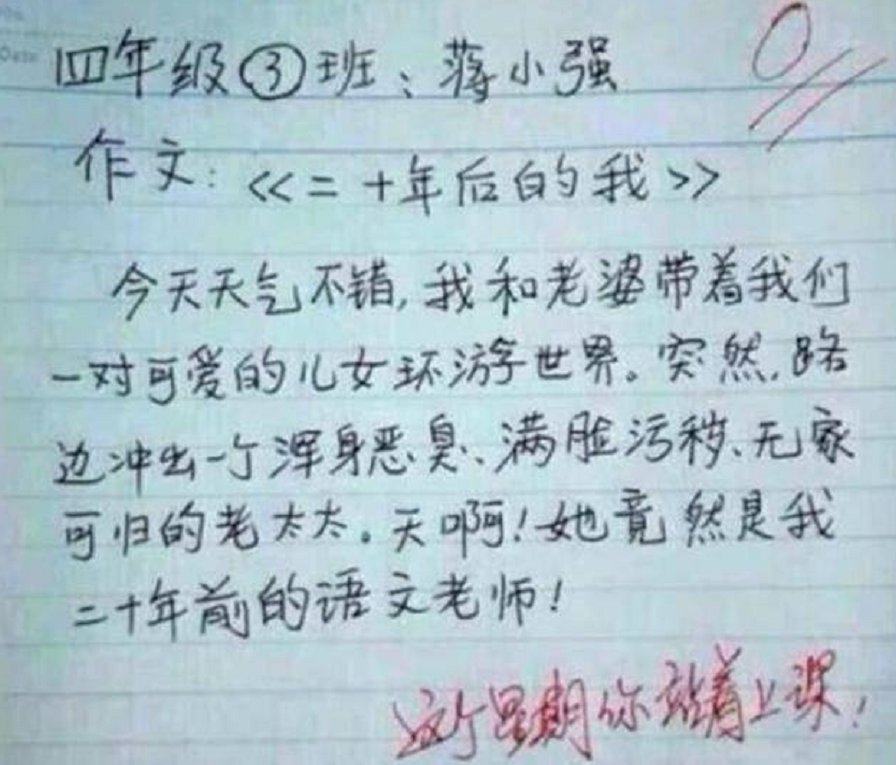 四年级③班：蒋小强
0
作文：<<二十年后的我>>
今天天气不错，我和老婆带着我们
一对可爱的儿女环游世界。突然，路
边冲出一个浑身恶臭、满脸污秽、无家
可归的老太太。天啊！她竟然是我
二十年前的语文老师！
这个星期你站着上课！